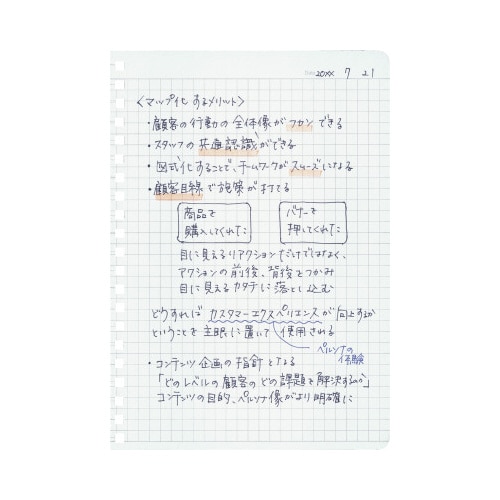 Date 20XX 7 21
〈マップ化するメリット〉
・顧客の行動の全体像がフカンできる
・スタッフの共通認識ができる
・図式化することで、チームワークがスムーズになる
・顧客目線で施策が打てる
商品を
購入してくれた
バナーを
押してくれた
目に見えるリアクションだけではなく、
アクションの前後、背後をつかみ
目に見えるカタチに落とし込む
どうすればカスタマーエクスペリエンスが向上するか
ということを主眼に置いて使用される
ペルソナの
体験
・コンテンツ企画の指針となる
「どのレベルの顧客のどの課題を解決するか」
コンテンツの目的、ペルソナ像がより明確に